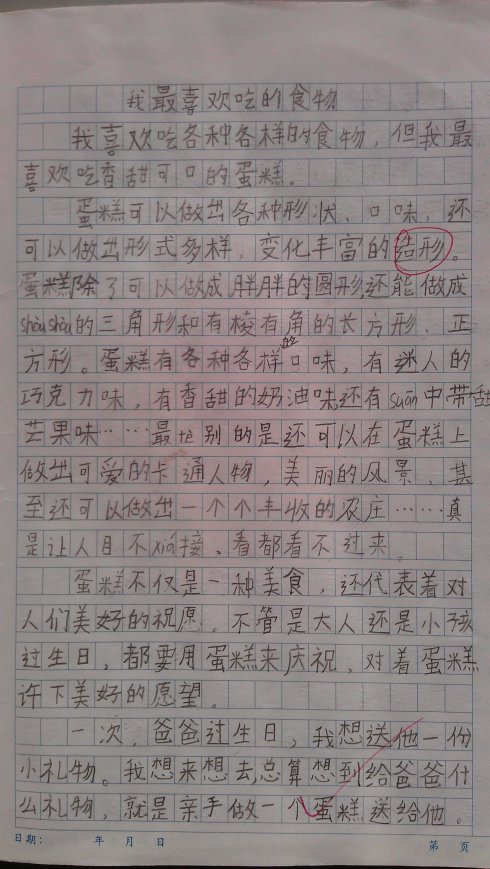 我最喜欢吃的食物
我喜欢吃各种各样的食物，但我最
喜欢吃香甜可口的蛋糕。
蛋糕可以做出各种形状、口味，还
可以做出形式多样，变化丰富的造形。
蛋糕除了可以做成胖胖的圆形，还能做成
shòu shòu的三角形和有棱有角的长方形、正
方形。蛋糕有各种各样的口味，有迷人的
巧克力味，有香甜的奶油味，还有suān中带甜
芒果味……最tè别的是还可以在蛋糕上
做出可爱的卡通人物，美丽的风景，甚
至还可以做出一个个丰收的农庄……真
是让人目不xiá接，看都看不过来。
蛋糕不仅是一种美食，还代表着对
人们美好的祝愿。不管是大人还是小孩
过生日，都要用蛋糕来庆祝，对着蛋糕
许下美好的愿望。
一次，爸爸过生日，我想送他一份
小礼物。我想来想去，总算想到给爸爸什
么礼物，就是亲手做一个蛋糕送给他。
日期： 年 月 日 第 页